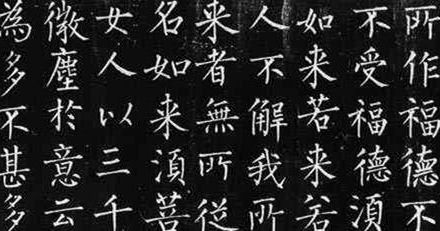 所作福德不
不受福德須
如来若来若
人不解我所
来者無所從
名如来須菩
女人以三千
微塵於意云
為多不甚多